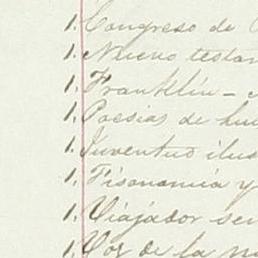 1. Congreso de
1. Nuevo testa
1. Franklin -
1. Poesias de
1. Juventud ilus
1. Fisonomia y
1. Viajador sen
1. Voz de la